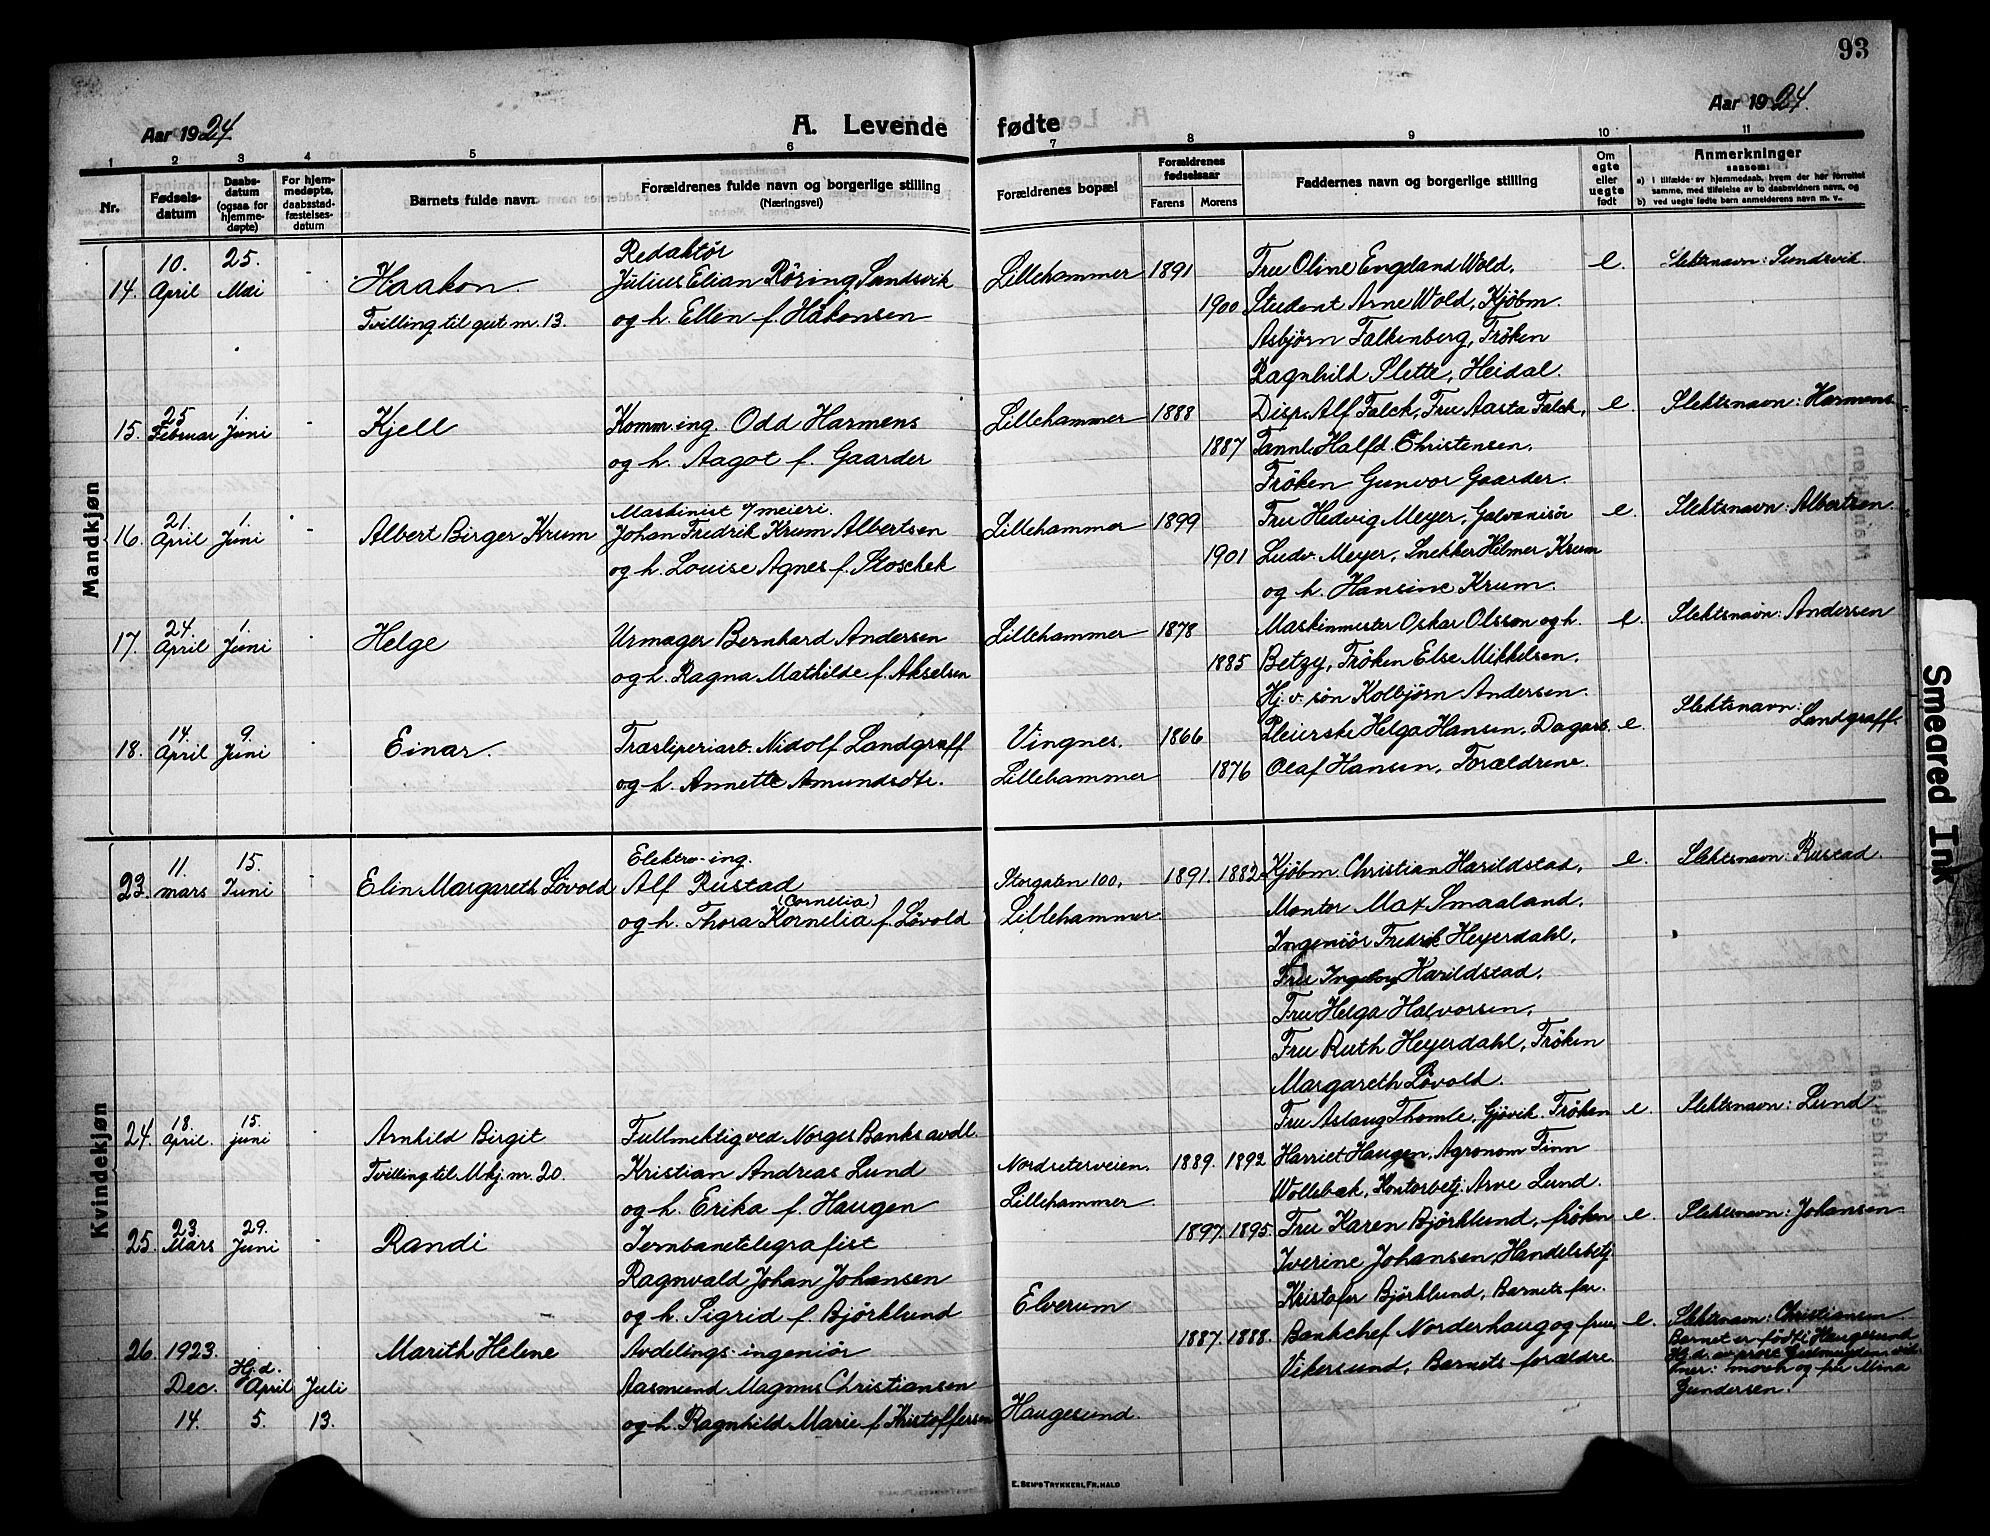 93
Aar 1924
A. Levende
fødte
Aar 1924.
1 2 3 4 5 6 7 8 9 10 11
Nr.
Fødsels-
datum
Daabs-
datum
(ogsaa for
hjemme-
døpte)
For hjem-
medøpte,
daabsstad-
fæstelses-
datum
Barnets fulde navn
Forældrenes fulde navn og borgerlige stilling
(Næringsvei)
Forældrenes bopæl
Forældrenes
fødselsaar
Farens Morens
Faddernes navn og borgerlige stilling
Om
egte
eller
uegte
født
Anmerkninger
saasom:
a) i tilfælde av hjemmedaab, hvem der har forrettet
samme, med tilføielse av to daabsvidners navn, og
b) ved uegte fødte barn anmelderens navn m. v.
Mandkjøn
14.
10.
April
25.
Mai
-
Haakon.
Tvilling til gut nr. 13.
Redaktør
Julius Elian Røring Sandsvik
og h. Ellen f. Håkonsen
Lillehammer
1891
1900
Fru Oline Engeland Wold,
Student Arne Wold, Kjøbm.
Asbjørn Falkenberg, Frøken
Ragnhild Slette, Heidal.
e.
Slektsnavn: Sundsvik
15.
25
Februar
1.
Juni
-
Kjell
Komm. ing. Odd Harmens
og h. Aagot f. Gaarder
Lillehammer
1888
1887
Disp. Alf Falck, Fru Aasta Falck,
Tannl. Halfd. Christensen,
Frøken Gunvor Gaarder.
e.
Slektsnavn: Harmens
16.
21.
April
1.
Juni
-
Albert Birger Krum
Maskinist v/ meieri.
Johan Fredrik Krum Albertsen
og h. Louise Agnes f. Stoschek
Lillehammer
1899
1901
Fru Hedvig Meyer, Galvanisør
Ludv. Meyer, Snekker Helmer Krum
og h. Hansine Krum.
e.
Slektsnavn: Albertsen
17.
24.
April
1.
Juni
-
Helge
Urmager Bernhard Andersen
og h. Ragna Mathilde f. Akselsen
Lillehammer
1878
1885
Maskinmester Oskar Olsson og h.
Betzy, Frøken Else Mikkelsen,
Hj. v. søn Kolbjørn Andersen.
e.
Slektsnavn: Andersen
18.
14.
April
9.
Juni
-
Einar.
Træsliperiarb. Nidolf Landgraff
og h. Annette Amundsdtr.
Vingnes.
Lillehammer
1866
1876
Pleierske Helga Hansen, Dagarb.
Olaf Hansen, Forældrene
e.
Slektsnavn:
Landgraff.
Kvindekjøn
23.
11.
mars
15.
Juni
-
Elin Margareth Løvold
Elektro-ing.
Alf Rustad
(Cornelia)
og h. Thora Kornelia f. Løvold
Storgaten 100,
Lillehammer.
1891. 1882
Kjøbm. Christian Harildstad,
Montør Max Smaaland,
Ingeniør Fredrik Heyerdahl,
Fru Ingeborg Harildstad,
Fru Helga Halvorsen,
Fru Ruth Heyerdahl, Frøken
Margareth Løvold.
e.
Slektsnavn: Rustad.
24.
18.
April.
15.
juni
-
Arnhild Birgit
Tvilling til Mkj. nr. 20.
Fullmektig ved Norges Banks avdl.
Kristian Andreas Lund
og h. Erika f. Haugen
Nordseterveien,
Lillehammer.
1889. 1892
Fru Aslaug Thomle, Gjøvik. Frøken
Harriet Haugen, Agronom Finn
Wollebæk, Kontorbetj. Arve Lund.
e.
Slektsnavn: Lund
25.
23.
Mars
29.
Juni
-
Randi
Jernbanetelegrafist
Ragnvald Johan Johansen
og h. Sigrid f. Bjørklund
Elverum
1897. 1895.
Fru Karen Bjørklund, frøken
Iverine Johansen, Handelsbetj.
Kristofer Bjørklund, Barnets far.
e.
Slektsnavn: Johansen
26.
1923.
Dec.
14.
Hj.d.
April
5.
Juli
13.
Marith Helene
Avdelings-ingeniør
Aasmund Magnus Christiansen
og h. Ragnhild Marie f. Kristoffersen
Haugesund.
1887. 1888.
Bankchef Norderhaug og frue,
Vikersund, Barnets forældre.
e.
Slektsnavn: Christiansen
Barnet er født i Haugesund
Hj.d. av prost
mor og fru Mina
Gundersen.
E. SEM'S TRYKKERI, FR.HALD
Smeared Ink